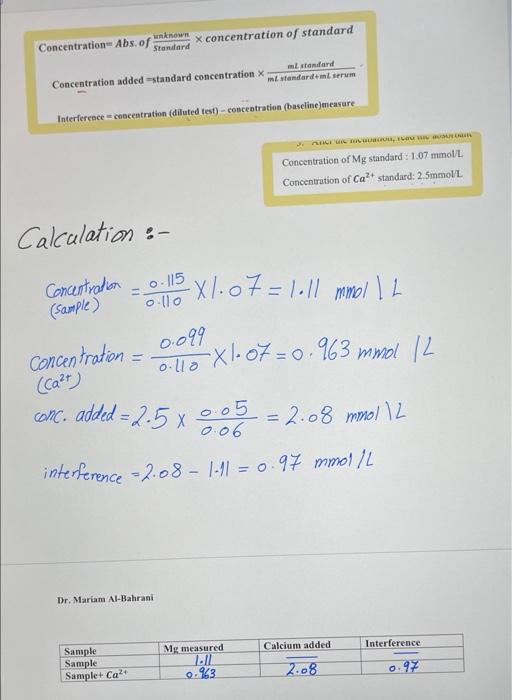 Concentration= Abs. of unknown/Standard × concentration of standard
Concentration added =standard concentration × mL standard/mL standard+mL serum
Interference = concentration (diluted test) – concentration (baseline)measure
Concentration of Mg standard : 1.07 mmol/L
Concentration of Ca²⁺ standard: 2.5mmol/L
Calculation :-
Concentration (sample) = 0.115/0.110 X 1.07 = 1.11 mmol \ L
Concentration (Ca²⁺) = 0.099/0.110 X 1.07 = 0.963 mmol /L
conc. added = 2.5 x 0.05/0.06 = 2.08 mmol \L
interference = 2.08 - 1.11 = 0.97 mmol /L
Dr. Mariam Al-Bahrani
Sample Mg measured Calcium added Interference
Sample 1.11 — —
Sample+ Ca²⁺ 0.963 2.08 0.97